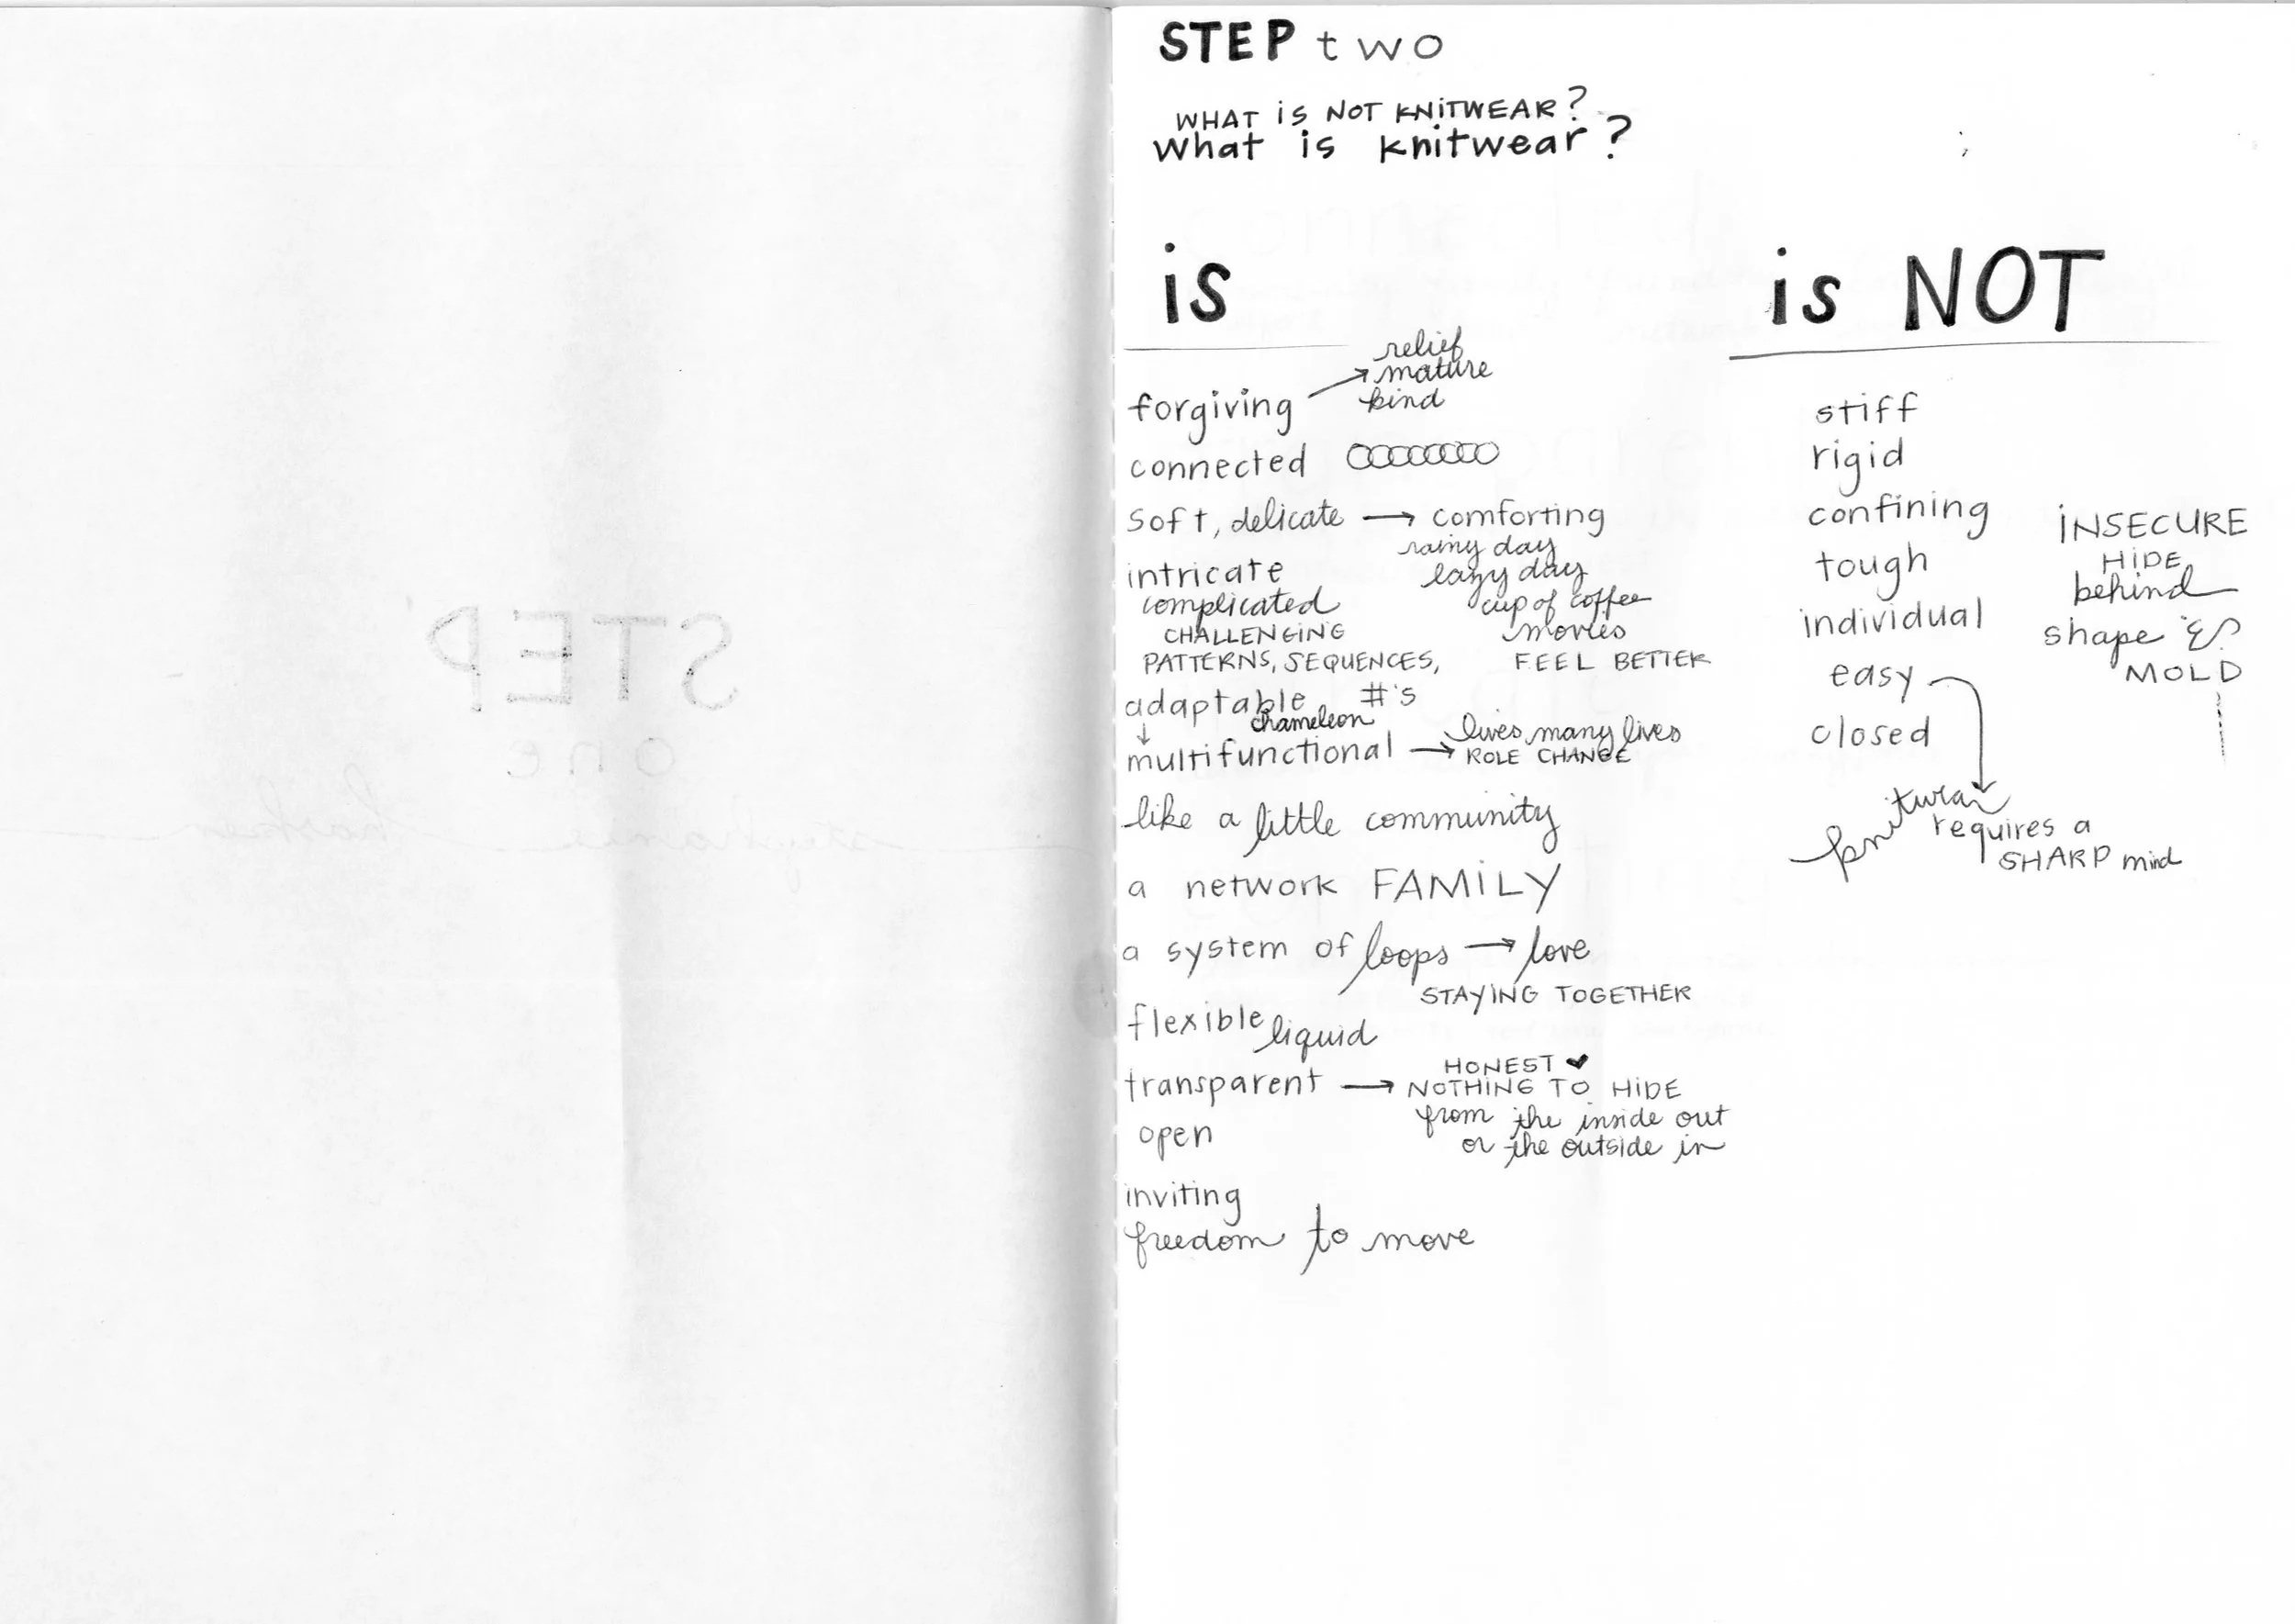 STEP two
WHAT iS NOT KNiTWEAR?
What is knitwear?
is
relief
mature
forgiving → kind
connected
soft, delicate → comforting
rainy day
intricate lazy day
complicated cup of coffee
CHALLENGING movies
PATTERNS, SEQUENCES, FEEL BETTER
adaptable #'s
chameleon
↓ lives many lives
multifunctional → ROLE CHANGE
like a little community
a network FAMiLY
a system of loops → love
STAYiNG TOGETHER
flexible liquid
HONEST ♥
transparent → NOTHiNG TO HiDE
from the inside out
open or the outside in
inviting
freedom to move
is NOT
stiff
rigid
confining
tough
individual
easy
closed
knitwear
requires a
SHARP mind
iNSECURE
HiDE
behind
shape &
MOLD
STEP
one